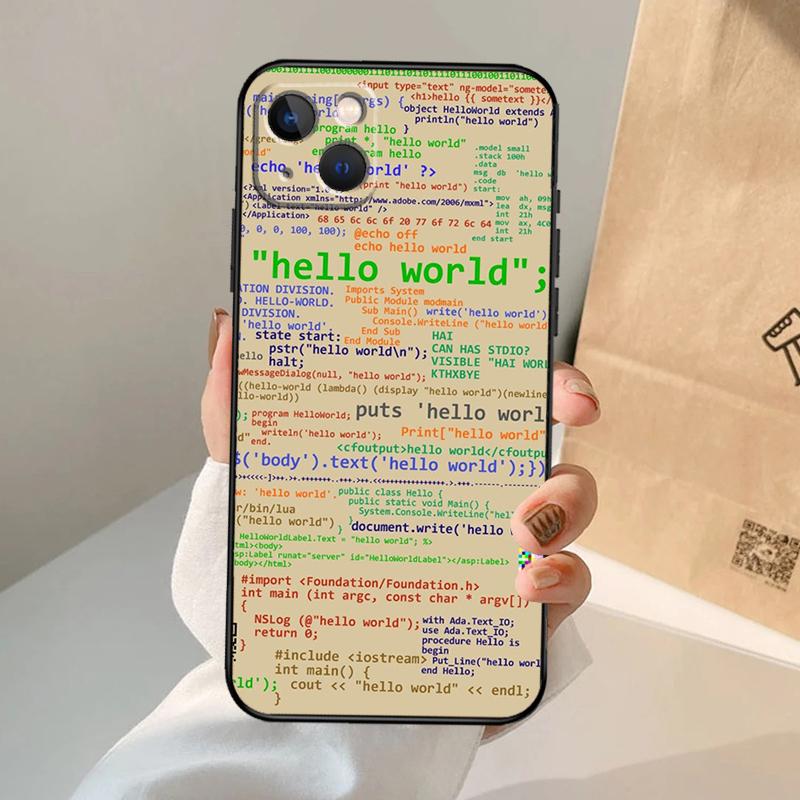 <input type="text" ng-model="somete
<h1>hello {{ sometext }}</
object HelloWorld extends A
println("hello world")
}
program hello
print *, "hello world"
end program hello
echo 'he
orld' ?>
.model small
.stack 100h
.data
msg db 'hello w
.code
start:
mov ah, 09h
lea dx, msg
int 21h
mov ax, 4C0
int 21h
end start
(print "hello world")
<?xml version="1.0
<Application xmlns="http://www.adobe.com/2006/mxml">
<Label text="hello world" />
</Application>
68 65 6c 6c 6f 20 77 6f 72 6c 64
0, 0, 0, 100, 100);
@echo off
echo hello world
"hello world";
ATION DIVISION.
D. HELLO-WORLD.
DIVISION.
'hello world'.
Imports System
Public Module modmain
Sub Main()
Console.WriteLine ("hello world
End Sub
End Module
write('hello world')
HAI
CAN HAS STDIO?
VISIBLE "HAI WORL
KTHXBYE
state start:
pstr("hello world\n");
halt;
ello
wMessageDialog(null, "hello world");
((hello-world (lambda() (display "hello world")(newline
llo-world))
puts 'hello worl
);
program HelloWorld;
begin
writeln('hello world');
end.
d"
Print["hello world"
<cfoutput>hello world</cfoutpu
$('body').text('hello world');})
w: 'hello world',
public class Hello {
public static void Main() {
System.Console.WriteLine("hel
}
}
r/bin/lua
("hello world")
document.write('hello w
HelloWorldLabel.Text = "hello world"; %>
tml><body>
asp:Label runat="server" id="HelloWorldLabel"></asp:Label>
body></html>
#import <Foundation/Foundation.h>
int main (int argc, const char * argv[])
{
NSLog (@"hello world");
return 0;
}
with Ada.Text_IO;
use Ada.Text_IO;
procedure Hello is
begin
Put_Line("hello worl
end Hello;
#include <iostream>
int main() {
cout << "hello world" << endl;
}
rld');